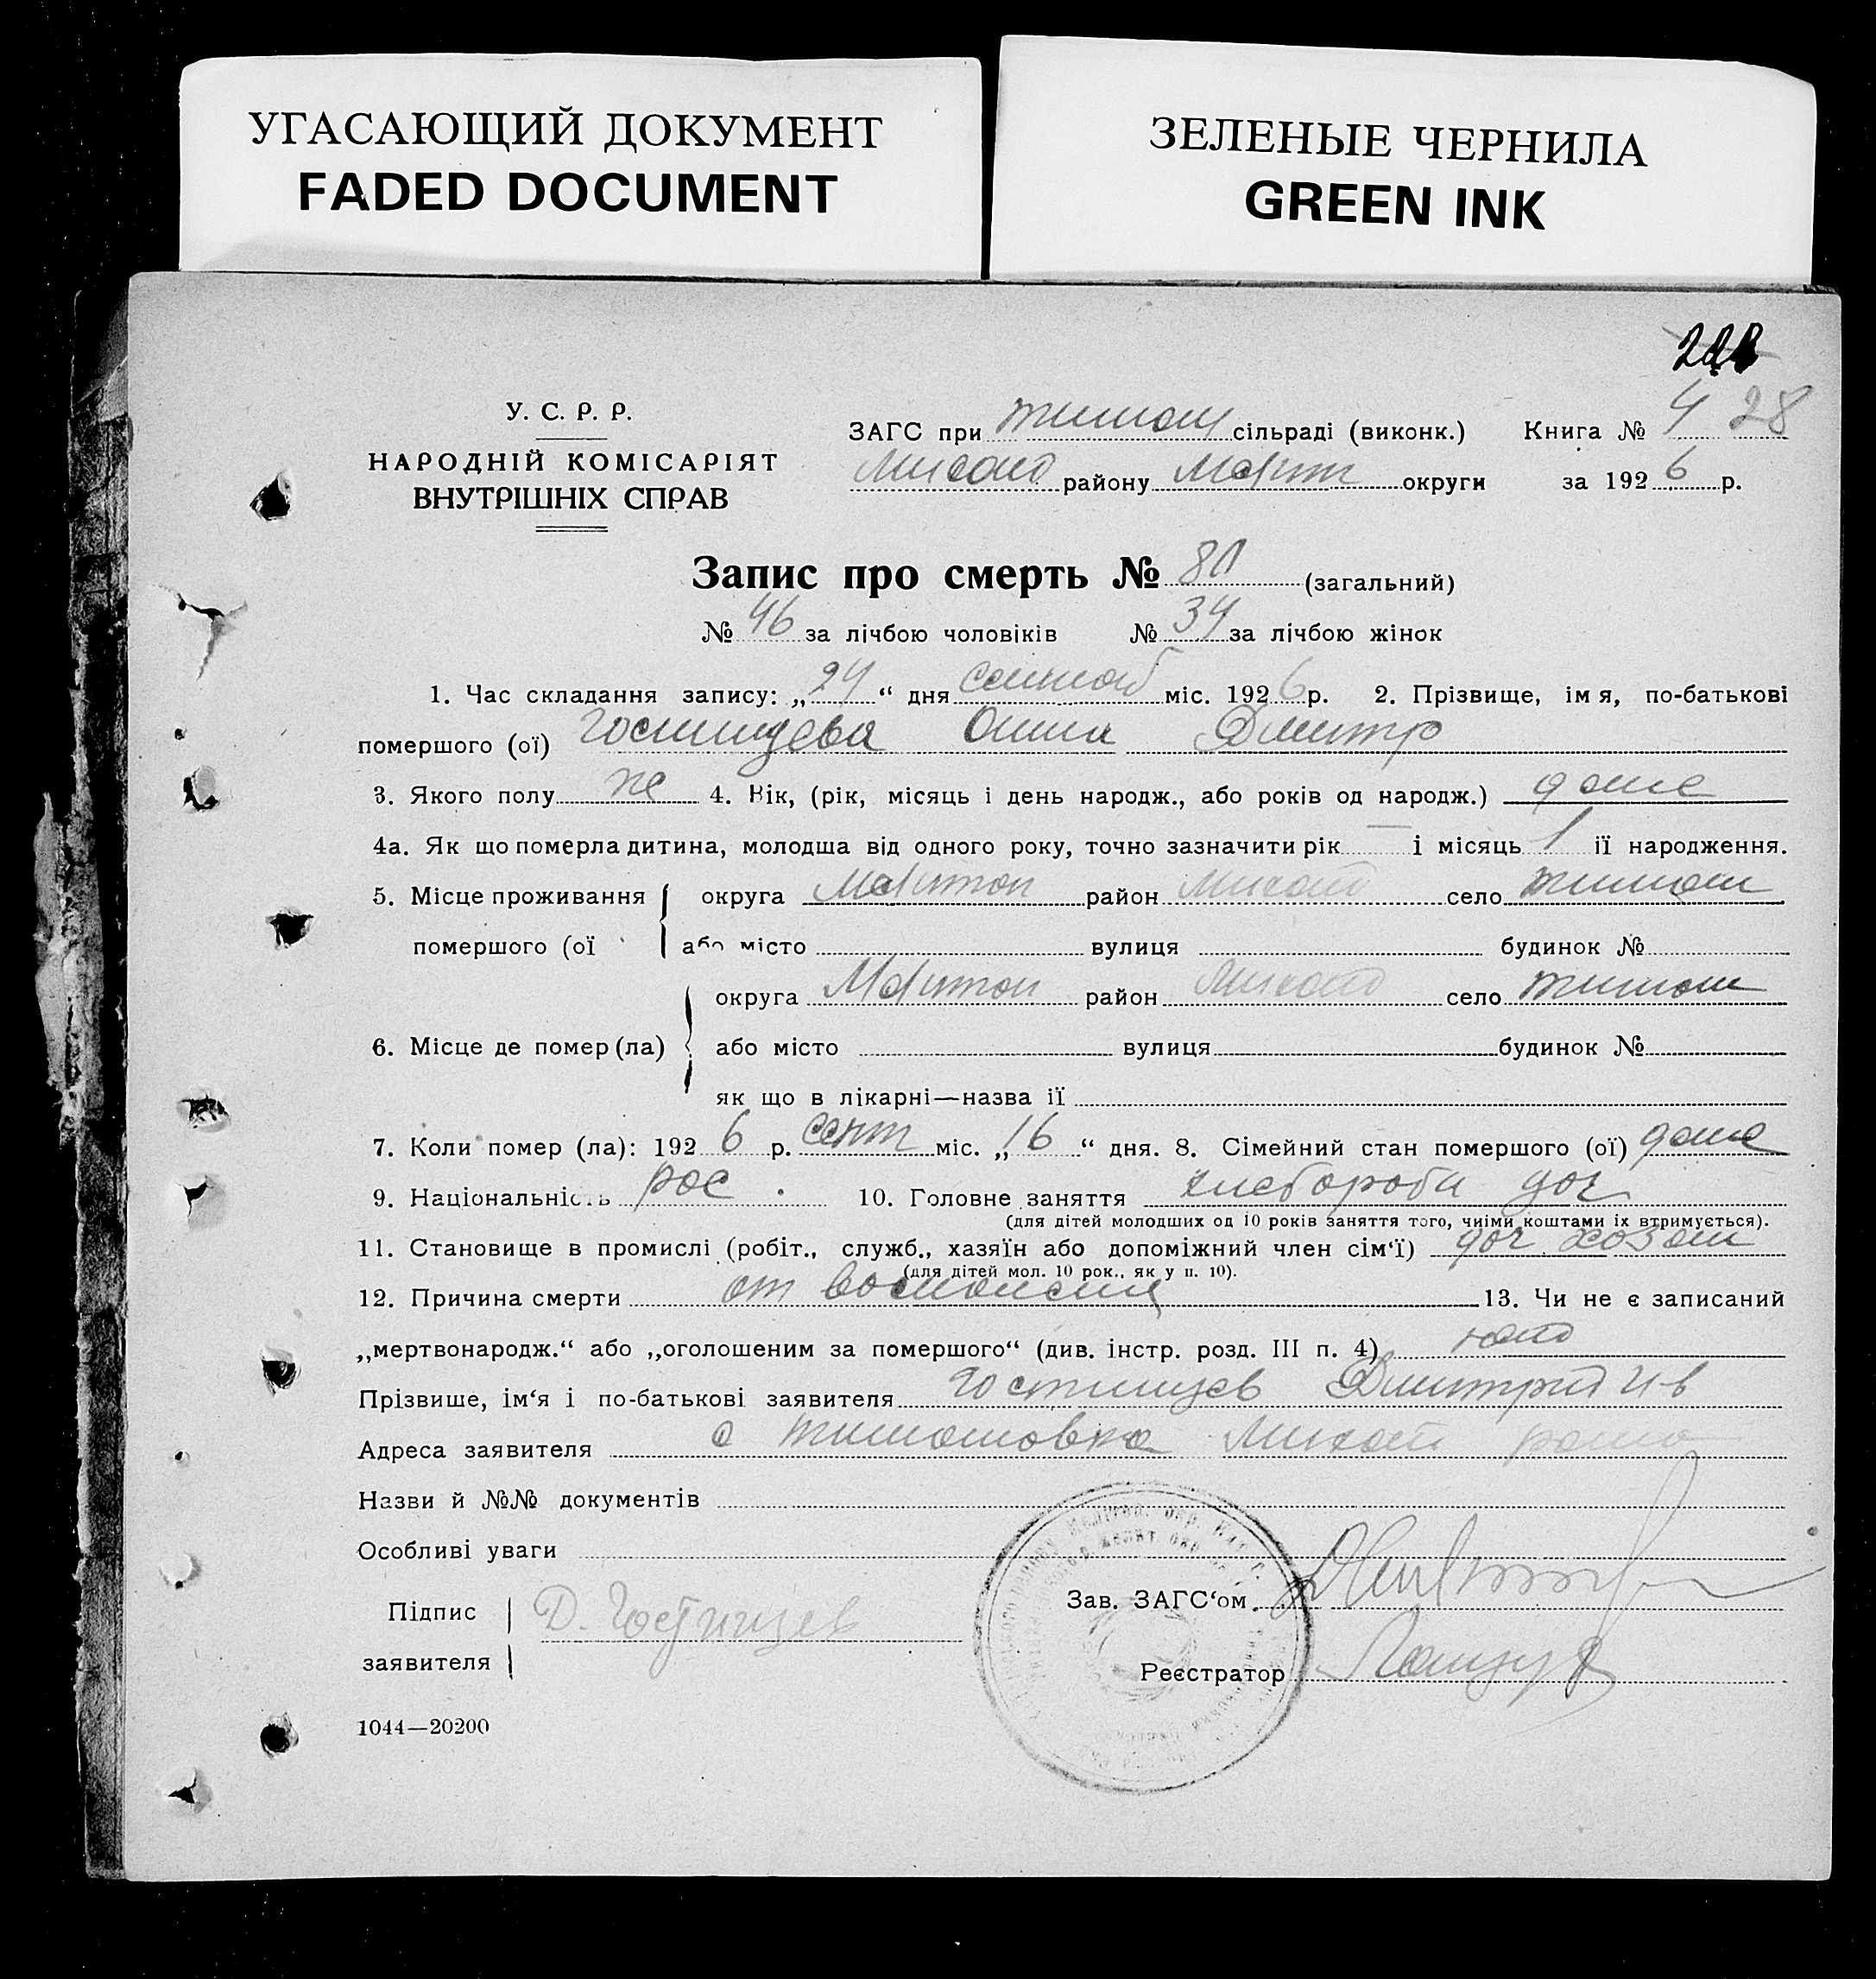 УГАСАЮЩИЙ ДОКУМЕНТ
FADED DOCUMENT
ЗЕЛЕНЫЕ ЧЕРНИЛА
GREEN INK
У. С. Р. Р.
НАРОДНІЙ КОМІСАРІЯТ
ВНУТРІШНІХ СПРАВ
ЗАГС при тимош сільраді (виконк.) Книга № 4 28
району округи за 1926 р.
Запис про смерть № 80 (загальний)
№ 46 за лічбою чоловіків № 34 за лічбою жінок
1. Час складання запису: „24“ дня міс. 1926 р. 2. Прізвище, імя, по-батькові
помершого (ої) Гостищева Дмитр
3. Якого полу же 4. Вік, (рік, місяць і день народж., або років од народж.)
4а. Як що померла дитина, молодша від одного року, точно зазначити рік — і місяць 1 її народження.
5. Місце проживання округа район село
помершого (ої або місто вулиця будинок №
округа район село тимош
6. Місце де помер (ла) або місто вулиця будинок №
як що в лікарні—назва її
7. Коли помер (ла): 1926 р. сент міс. „16“ дня. 8. Сімейний стан помершого (ої)
9. Національність рос. 10. Головне заняття хлебороба доч
(для дітей молодших од 10 років заняття того, чиїми коштами їх втримується).
11. Становище в промислі (робіт., служб., хазяїн або допоміжний член сім‘ї) доч хозяин
(для дітей мол. 10 рок., як у п. 10).
12. Причина смерти от 13. Чи не є записаний
„мертвонародж.“ або „оголошеним за помершого“ (див. інстр. розд. III п. 4)
Прізвише, ім‘я і по-батькові заявителя Гостищев Дмитрий Ив
Адреса заявителя с Тимошовка Михай
Назви й №№ документів
Особливі уваги
Підпис Д. Гостищев
заявителя
Зав. ЗАГС‘ом
Реєстратор
1044—20200